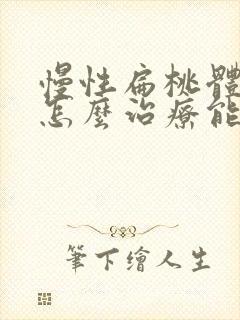 慢性扁桃體
怎麼治療能
筆下繪人生